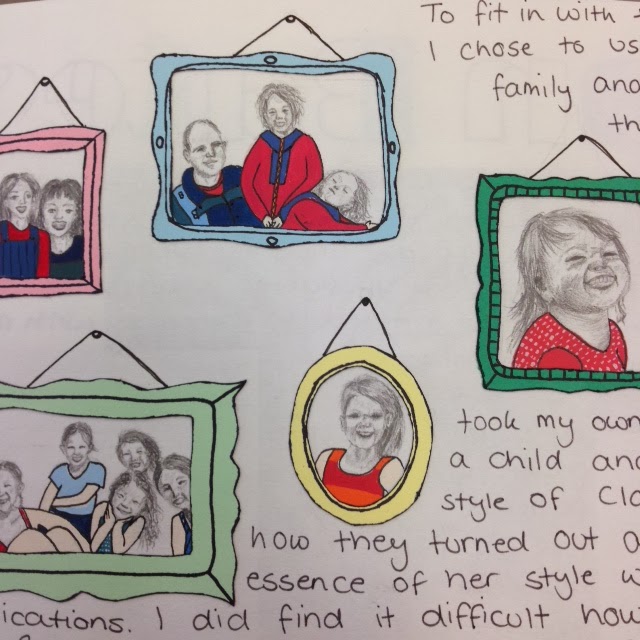 To fit in with
I chose to us
family and
th
took my own
a child and
style of Clo
how they turned out a
essence of her style w
ications. I did find it difficult how